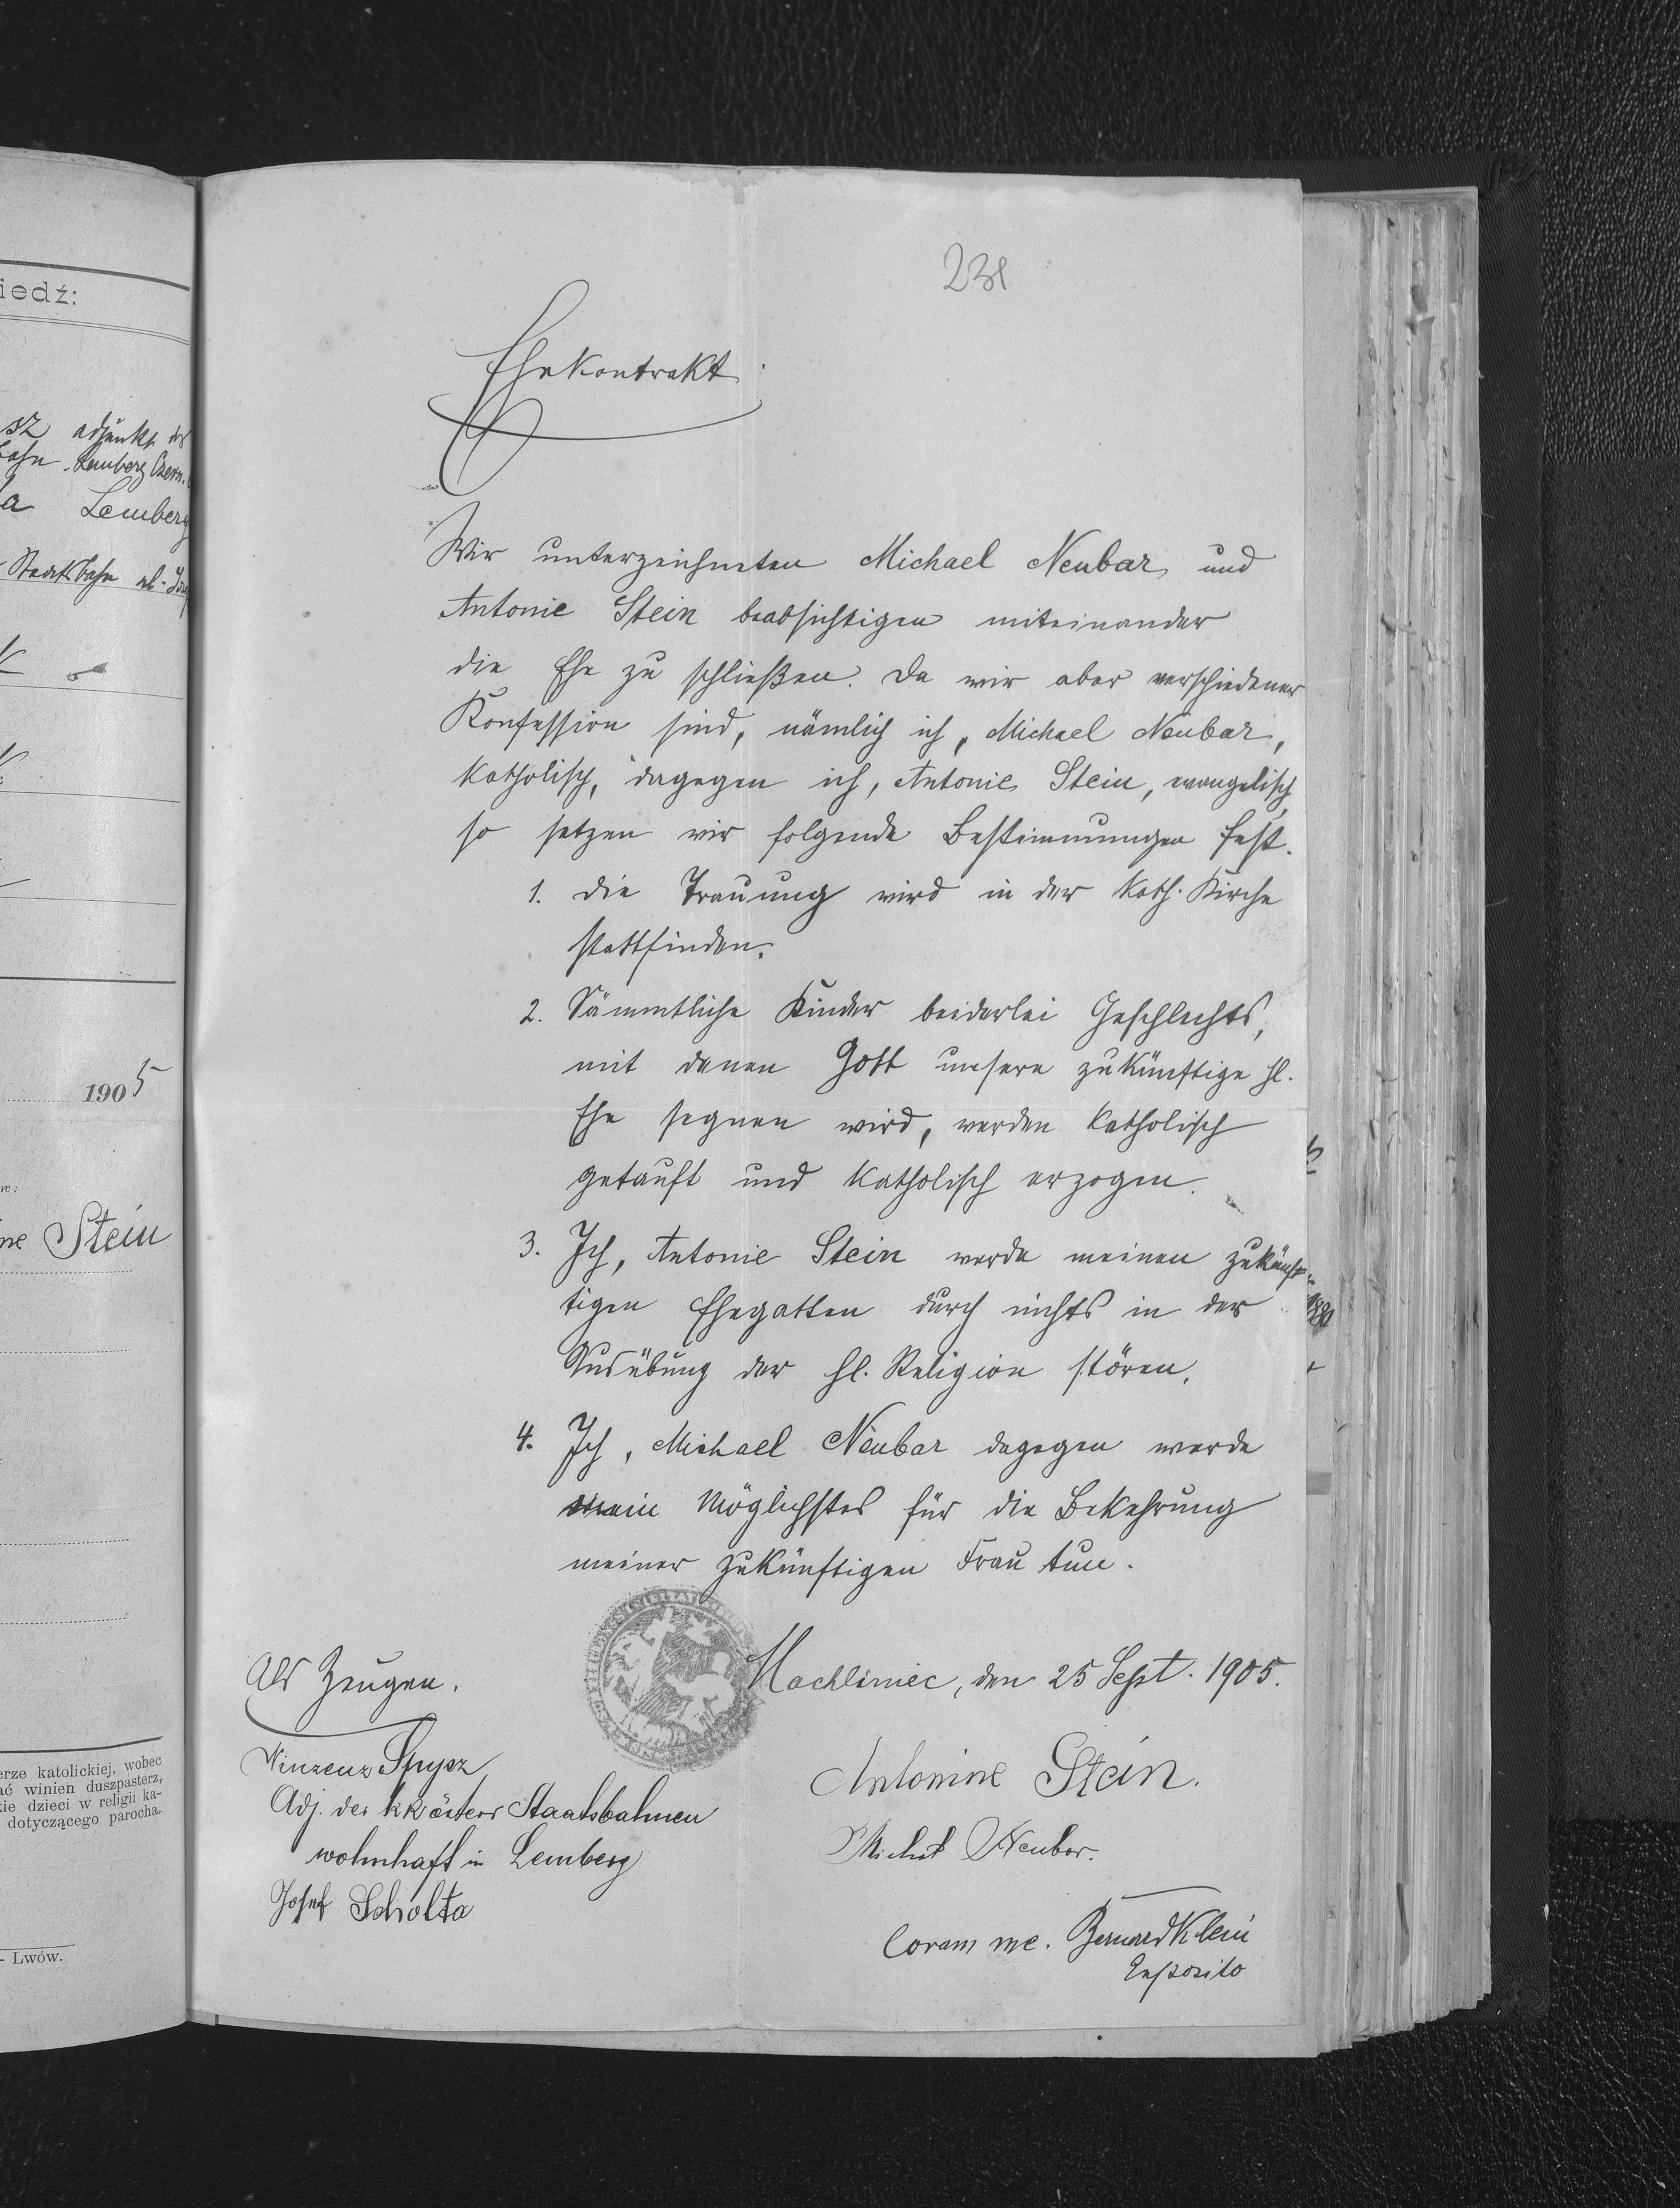 iedź:
sz adjunkt der
bahn Lemberg Czern.
a Lemberg
Staatsbahn
1905
ne Stein
erze katolickiej, wobec
ać winien duszpasterz,
kie dzieci w religii ka-
dotyczącego parocha.
- Lwów.
231
Ehekontrakt
Wir unterzeichneten Michael Neubar und
Antonie Stein beabsichtigen miteinander
die Ehe zu schließen. Da wir aber verschiedener
Konfession sind, nämlich ich, Michael Neubar,
katholisch, dagegen ich, Antonie Stein, evangelisch,
so setzen wir folgende Bestimmungen fest.
1. Die Trauung wird in der kath. Kirche
stattfinden.
2. Sämmtliche Kinder beiderlei Geschlechts,
mit denen Gott unsere zukünftige hl.
Ehe segnen wird, werden katholisch
getauft und katholisch erzogen.
3. Ich, Antonie Stein werde meinen zukünf-
tigen Ehegatten durch nichts in der
Ausübung der hl. Religion stören.
4. Ich, Michael Neubar dagegen werde
mein Möglichstes für die Bekehrung
meiner zukünftigen Frau tun.
Machliniec, den 25 Sept. 1905.
Als Zeugen.
Vinzenz Spysz
Adj. der kk österr Staatsbahnen
wohnhaft in Lemberg
Josef Scholta
Antonine Stein.
Michael Neubar.
Coram me. Bernard Klein
Exposito